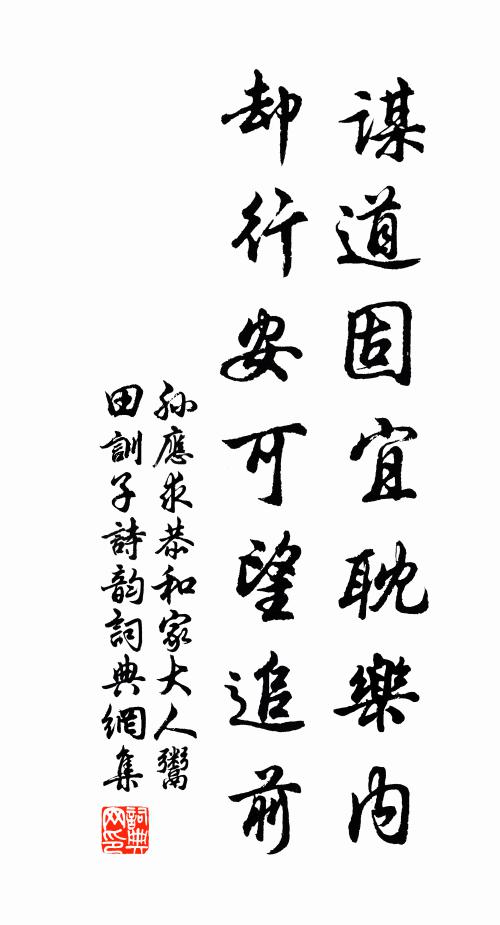 謀道固宜耽樂内
却行安可望追前
孫應求恭和家大人鬻
田訓子詩韵詞典網集
詞典网印